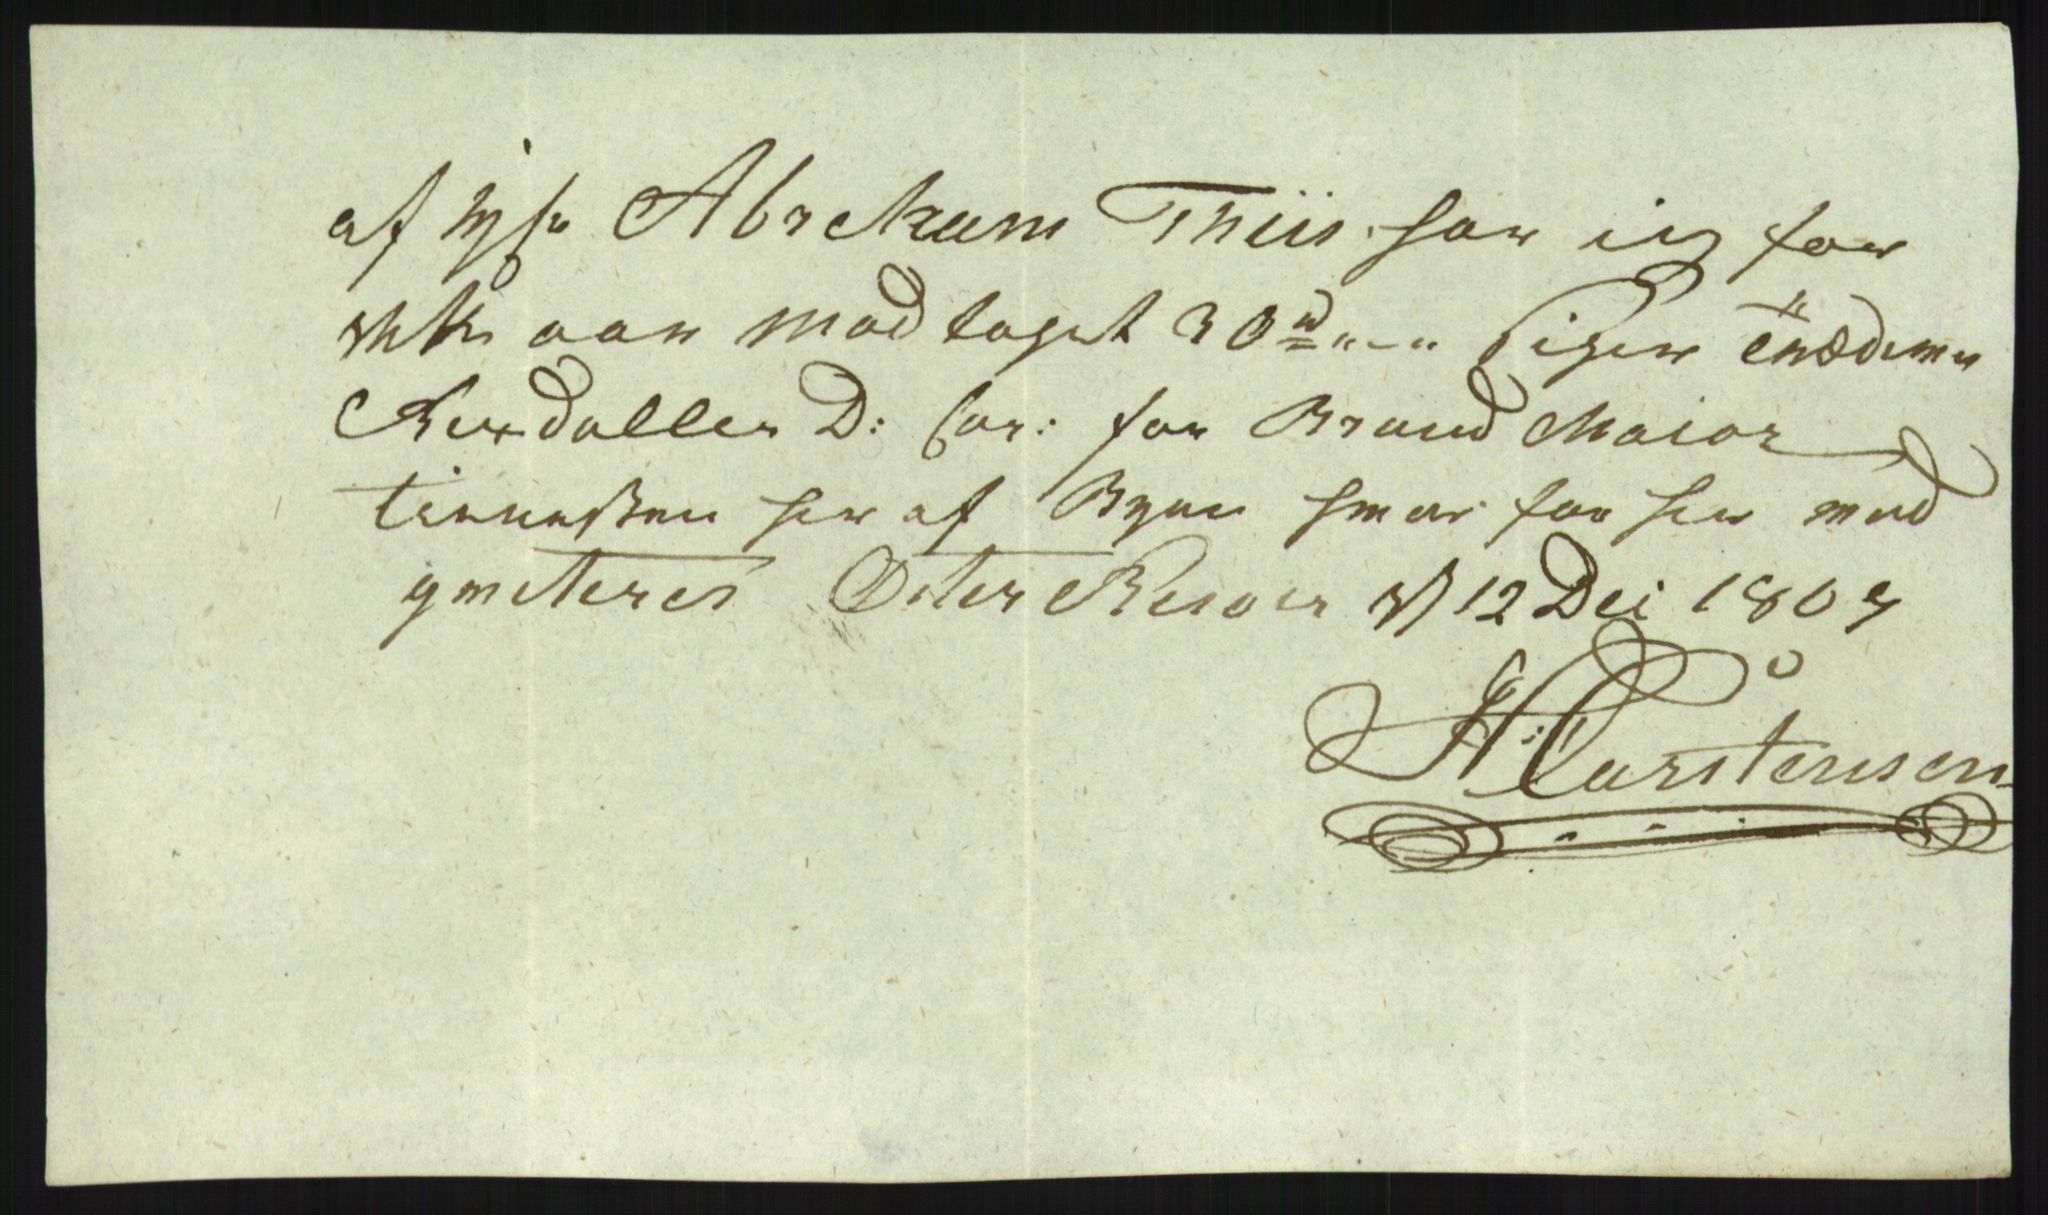 af Hr Abraham Thiis har ieg for
aar mod taget 30 rd Siger Tredeve
Rixdaller D: Cor: for Brand Maior
tiennesten her af Byen som for her med
qviteres Øster Riisøer d 12 Dei 1809
H: Carstensen